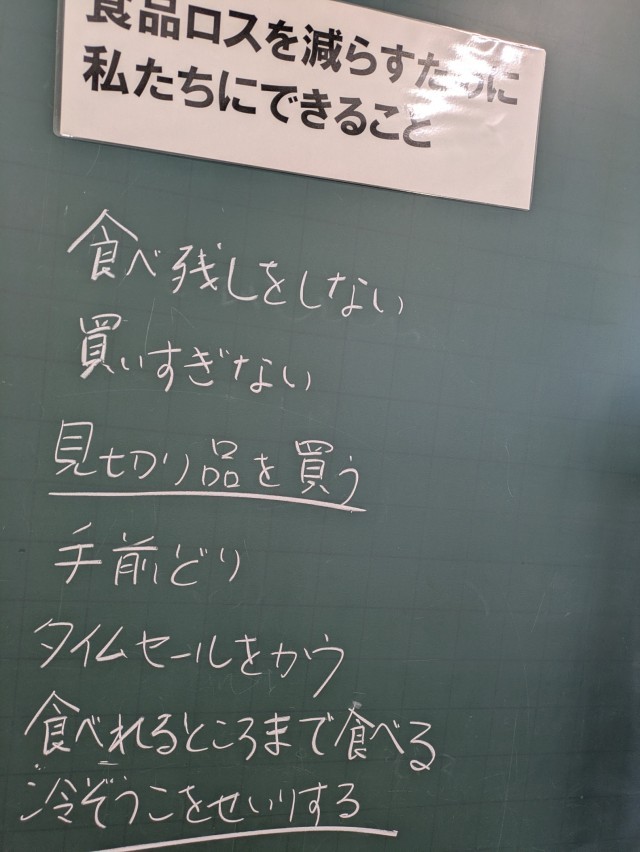 食品ロスを減らすために
私たちにできること
食べ残しをしない
買いすぎない
見切り品を買う
手前どり
タイムセールをかう
食べれるところまで食べる
冷ぞうこをせいりする